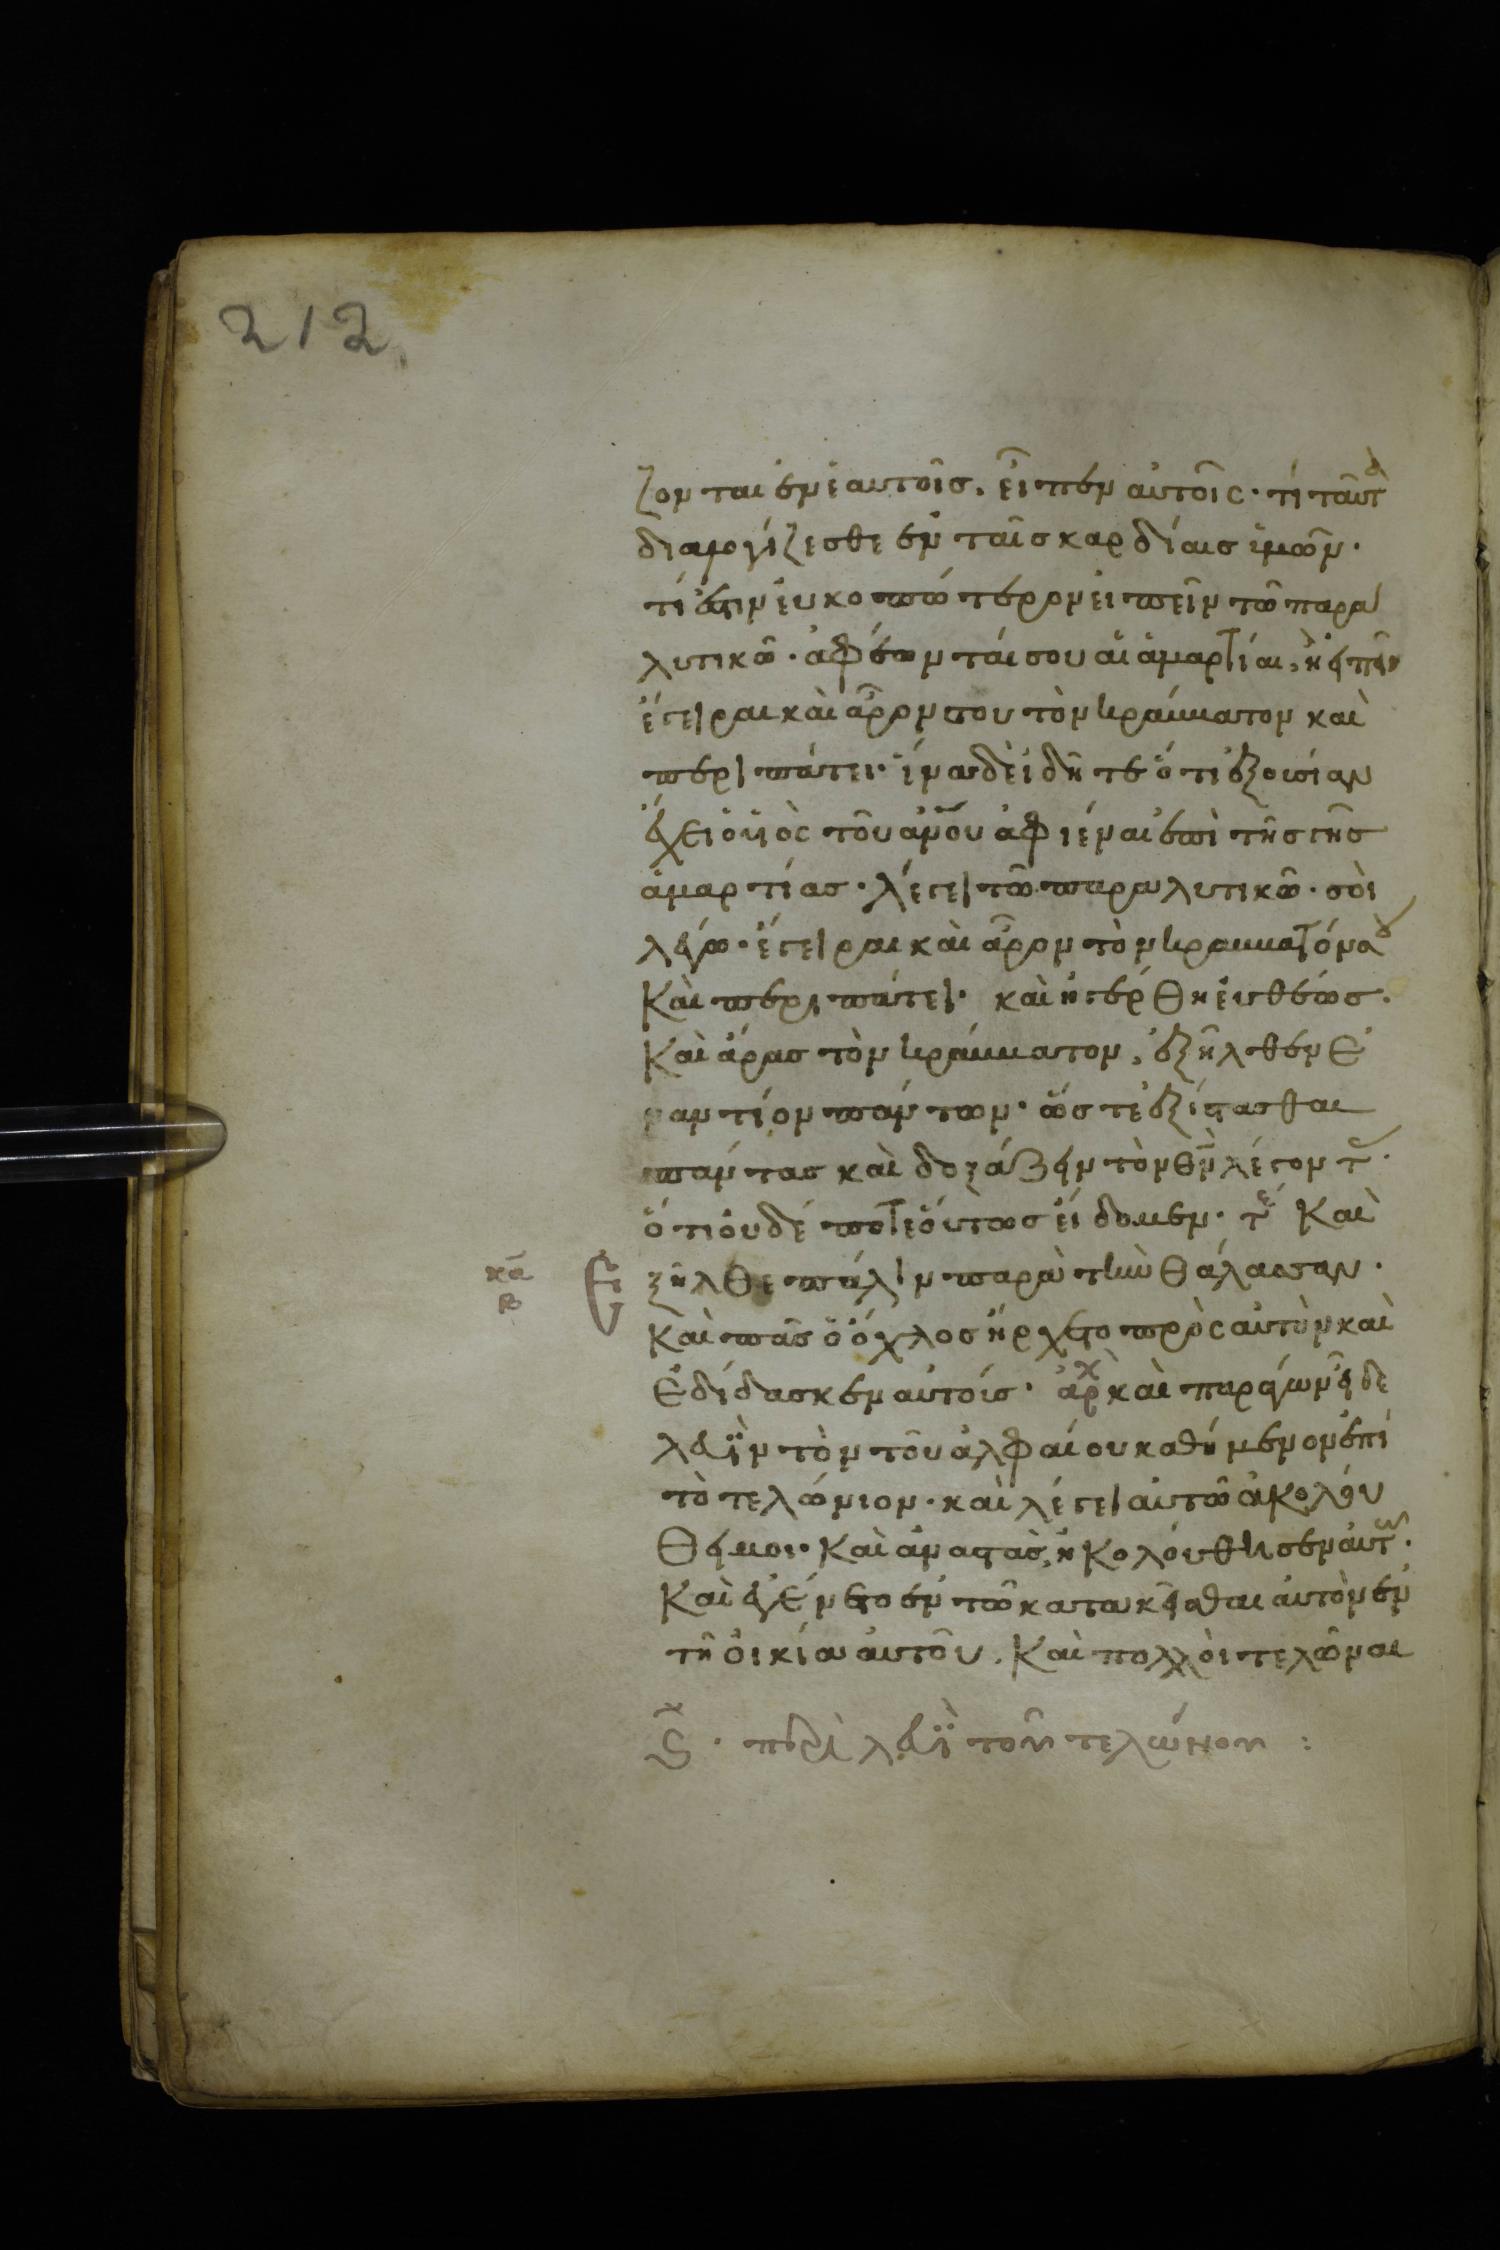 212
ζονται ἐν ἑαυτοῖς. εἶπεν αὐτοῖς· τί ταῦτα
διαλογίζεσθε ἐν ταῖς καρδίαις ὑμῶν·
τί ἐστιν εὐκοπώτερον εἰπεῖν τῶ παρα
λυτικῶ· ἀφέωνταί σου αἱ ἁμαρτίαι, ἢ εἰπεῖν
ἔγειραι καὶ ἆρόν σου τὸν κράββατον καὶ
περιπάτει· ἵνα δὲ ἰδῆτε ὅτι ἐξουσίαν
ἔχει ὁ υἱὸς τοῦ ἀνου ἀφιέναι ἐπὶ τῆς γῆς
ἁμαρτίας· λέγει τῶ παραλυτικῶ· σοὶ
λέγω· ἔγειραι καὶ ἆρον τὸν κράββατόν σου
Καὶ περιπάτει· καὶ ἠγέρθη εὐθέως·
Καὶ ἄρας τὸν κράββατον, ἐξῆλθεν ἐ
ναντίον πάντων· ὥστε ἐξίστασθαι
πάντας καὶ δοξάζειν τὸν θν λέγοντ
ὅτι οὐδέποτε οὕτως εἴδομεν· τε Καὶ
ξῆλθε πάλιν παρὰ τὴν θάλασσαν·
Καὶ πᾶς ὁ ὄχλος ἤρχετο πρὸς αὐτὸν καὶ
ἐδίδασκεν αὐτούς· ἀρχ καὶ παράγων εἶδε
λευὶν τὸν τοῦ ἀλφαίου καθήμενον ἐπὶ
τὸ τελώνιον· καὶ λέγει αὐτῶ ἀκολού
θει μοι· Καὶ ἀναστὰς, ἠκολούθησεν αὐτῶ·
Καὶ ἐγένετο ἐν τῶ κατακεῖσθαι αὐτὸν ἐν
τῆ οἰκία αὐτοῦ. Καὶ πολλοὶ τελῶναι
ϛ · περὶ λευῒ τοῦ τελώνου :